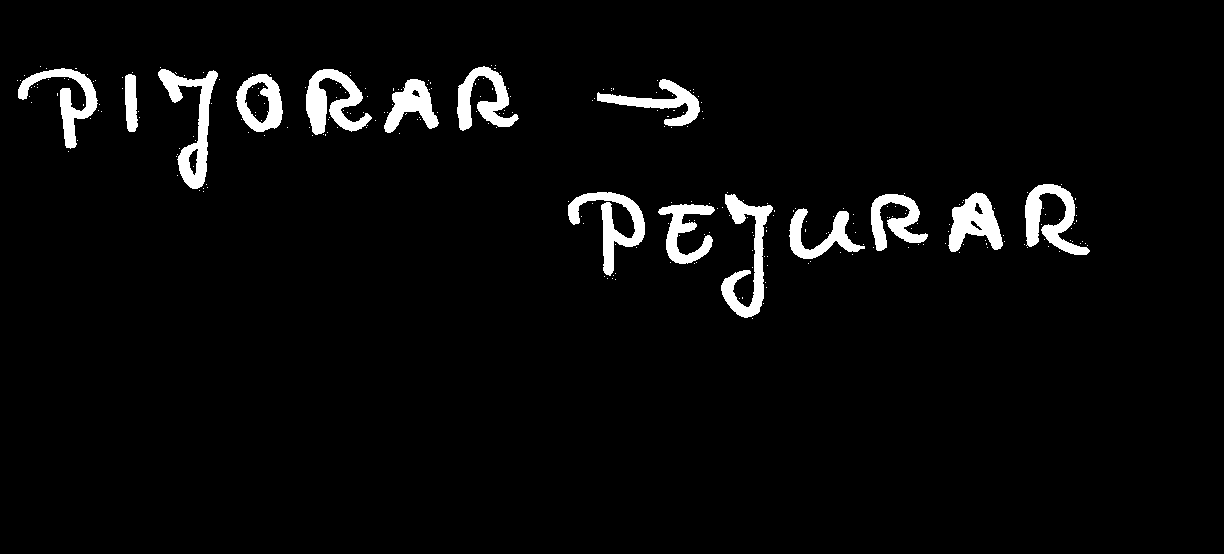 PIJORAR →
PEJURAR